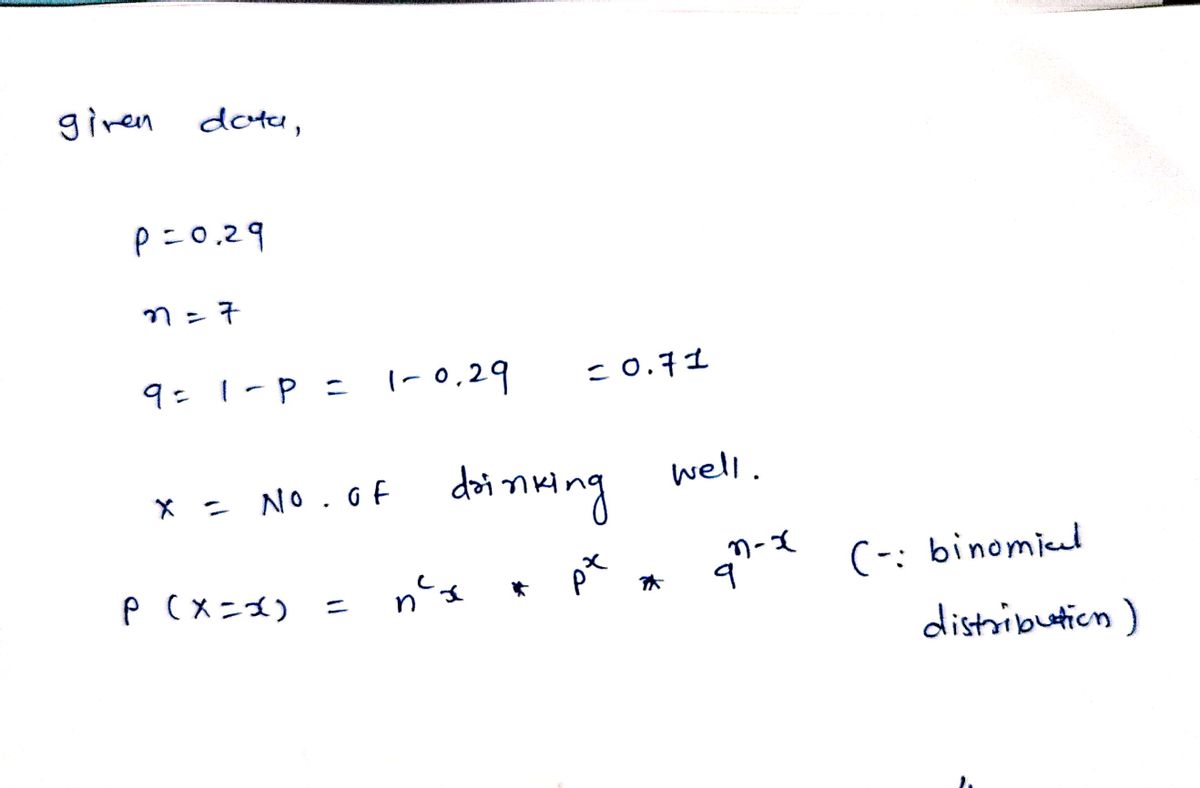 given data,
p = 0.29
n = 7
q = 1 - p = 1 - 0.29 = 0.71
x = No. of drinking well.
P (X = x) = nᶜx * pˣ * qⁿ⁻ˣ (-: binomial
distribution)